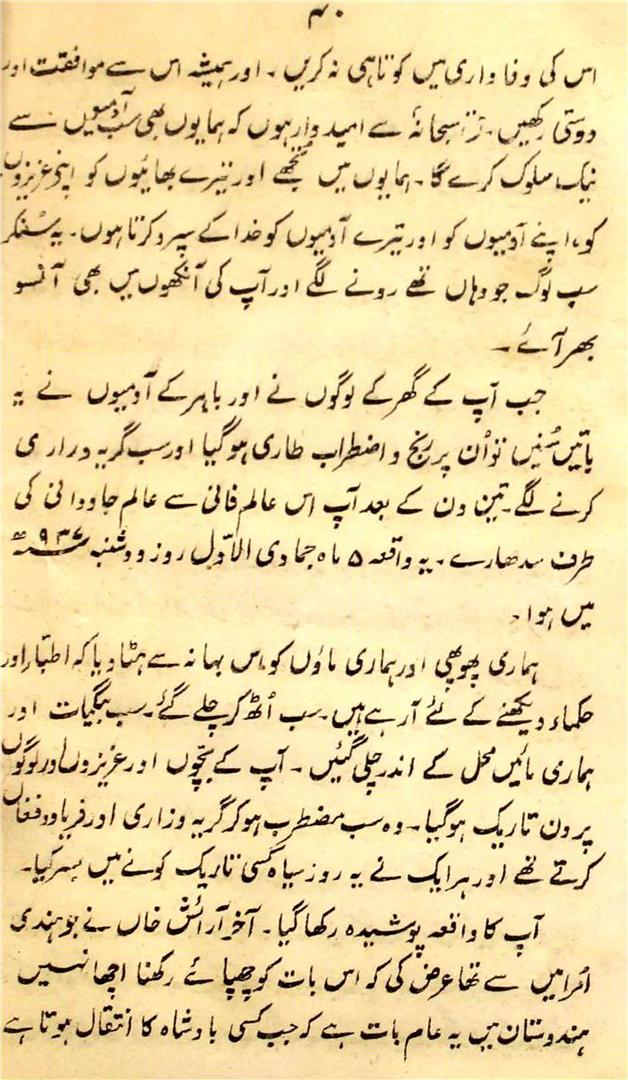 ۴۰
اس کی وفاداری میں کوتاہی نہ کریں ۔ اور ہمیشہ اس سے موافقت اور
دوستی رکھیں ۔ سبحانہٗ سے امیدوار ہوں کہ ہمایوں بھی سب آدمیوں سے
نیک سلوک کرے گا ۔ ہمایوں میں تجھے اور تیرے بھائیوں کو اپنے عزیزوں
کو، اپنے آدمیوں کو اور تیرے آدمیوں کو خدا کے سپرد کرتا ہوں ۔ یہ سُنکر
سب لوگ جو وہاں تھے رونے لگے اور آپ کی آنکھوں میں بھی آنسو
بھر آئے ۔
جب آپ کے گھر کے لوگوں نے اور باہر کے آدمیوں نے یہ
باتیں سُنیں تو اُن پر رنج و اضطراب طاری ہو گیا اور سب گریہ و زاری
کرنے لگے ۔ تین دن کے بعد آپ اس عالم فانی سے عالم جاودانی کی
طرف سدھارے ۔ یہ واقعہ ۵ ماہ جمادی الاوّل روز دوشنبہ ۹۳۷ھ
میں ہوا ۔
ہماری پھوپھی اور ہماری ماؤں کو اس بہانہ سے ہٹا دیا کہ اطبار اور
حکماء دیکھنے کے لئے آ رہے ہیں ۔ سب اُٹھ کر چلے گئے ۔ سب بیگمات اور
ہماری مائیں محل کے اندر چلی گئیں ۔ آپ کے بچّوں اور عزیزوں اور لوگوں
پر دن تاریک ہو گیا ۔ وہ سب مضطرب ہو کر گریہ و زاری اور فریاد و فغاں
کرتے تھے اور ہر ایک نے یہ روز سیاہ کسی تاریک کونے میں بسر کیا ۔
آپ کا واقعہ پوشیدہ رکھا گیا ۔ آخر آرائش خاں نے جو ہندی
اُمرا میں سے تھا عرض کی کہ اس بات کو چھپائے رکھنا اچھا نہیں
ہندوستان میں یہ عام بات ہے کہ جب کسی بادشاہ کا انتقال ہوتا ہے